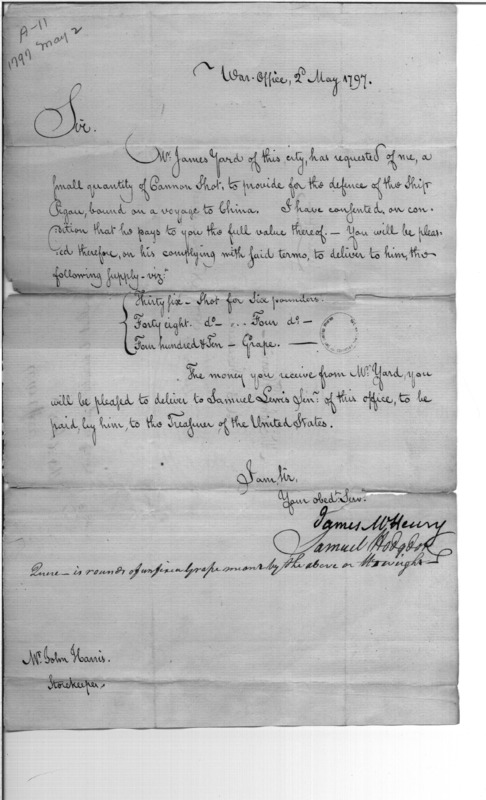 A-11
1797 May 2
War-Office, 2d May 1797.
Sir.
Mr. James Yard of this city, has requested of me, a
small quantity of Cannon Shot, to provide for the defence of the Ship
Pigou, bound on a voyage to China. I have consented, on con-
dition that he pays to you the full value thereof. — You will be pleas-
ed therefore, on his complying with said terms, to deliver to him, the
following supply - viz.t
Thirty six - Shot for Six pounders.
Forty eight. do - .. Four do -
Four hundred & Ten - Grape. —
The money you receive from Mr. Yard, you
will be pleased to deliver to Samuel Lewis Senr. of this office, to be
paid, by him, to the Treasurer of the United States.
I am, Sir,
Your obedt. Servt.
James McHenry
Samuel Hodgdon
Quere - is rounds of unfixed Grape meant by the above or the weight
Mr. John Harris.
Storekeeper.